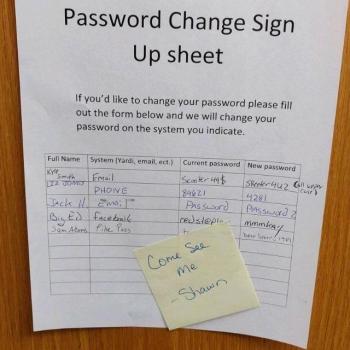 Password Change Sign
Up sheet
If you'd like to change your password please fill
out the form below and we will change your
password on the system you indicate.
Full Name System (Yardi, email, ect.) Current password New password
Kyle Smith Email Scooter49$ skeeter4U2 (all upper case)
PHONE 84621 4281
Jack H. Email Password Password 2
Big Ed Facebook redstepla mmmkay
Sam Adams Fire Pass
Come See
me
-Shawn